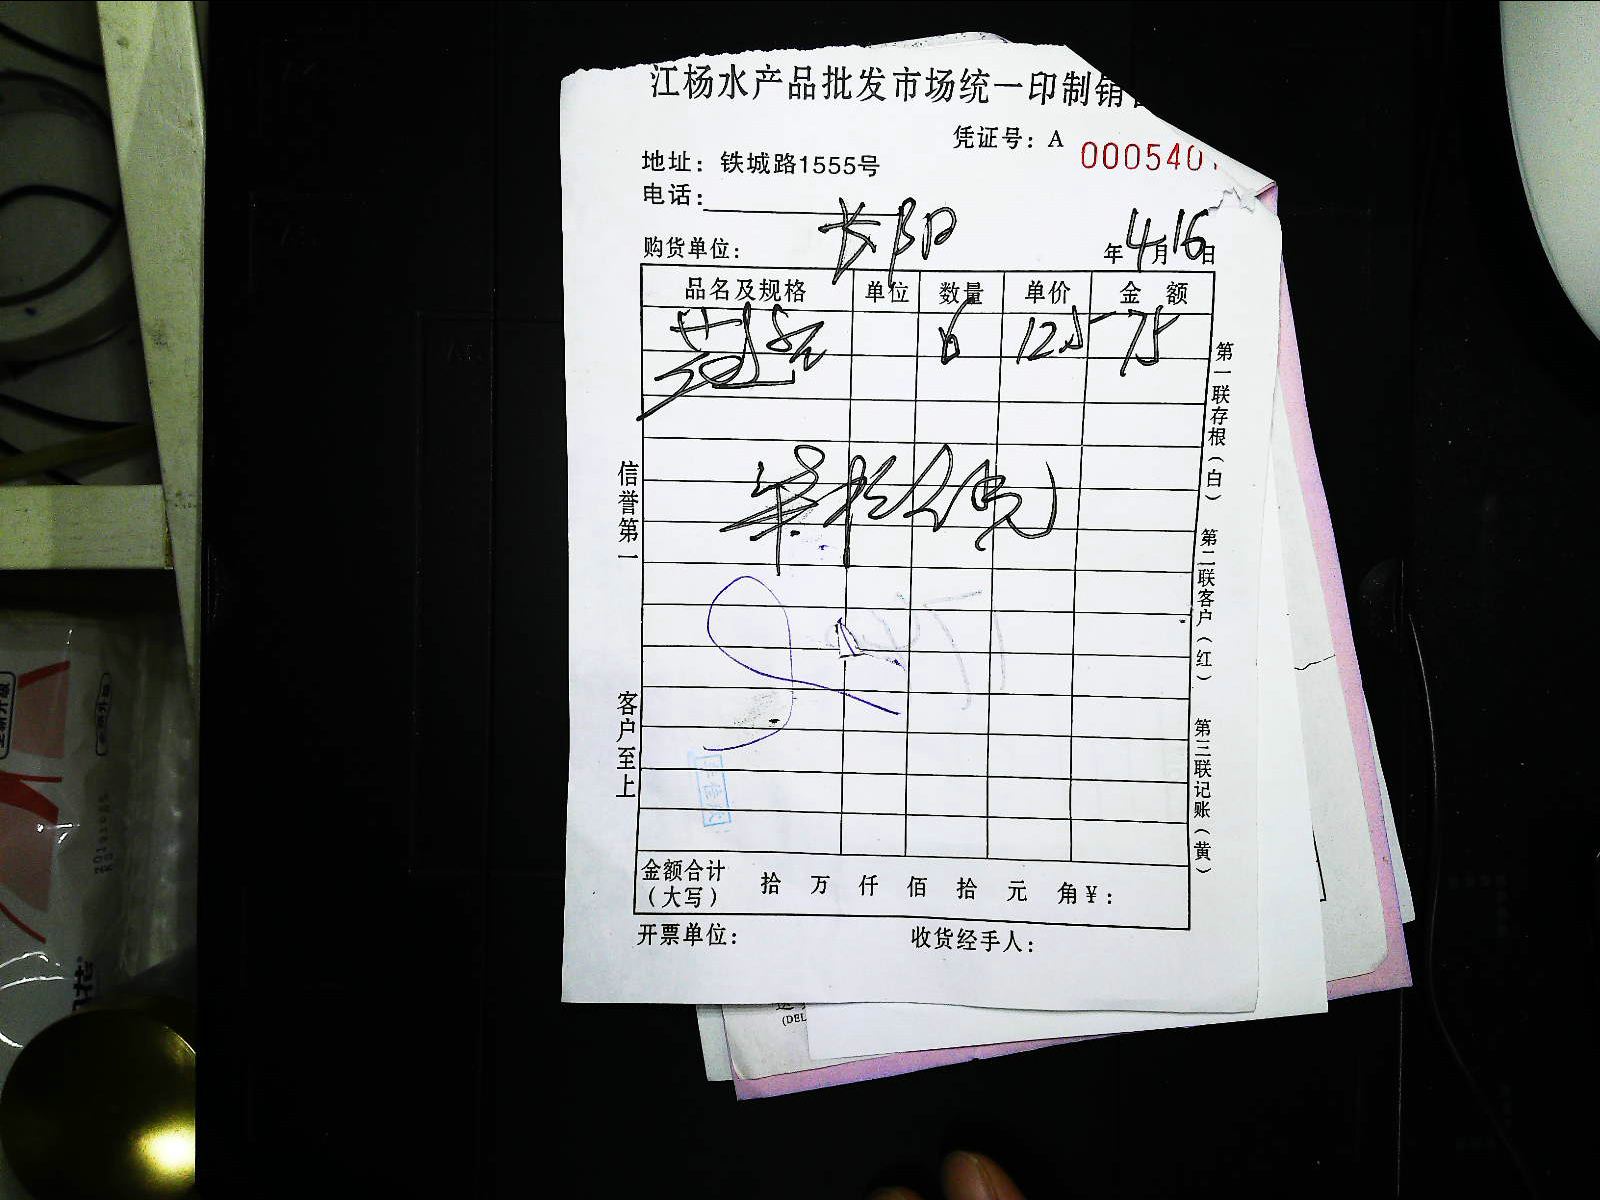 江杨水产品批发市场统一印制销
凭证号：A 000540
地址：铁城路1555号
电话：
购货单位：长阳 年4月16日
品名及规格 单位 数量 单价 金额
6 12.5 75
柒拾
信誉第一
客户至上
第一联存根（白）
第二联客户（红）
第三联记账（黄）
金额合计（大写） 拾 万 仟 佰 拾 元 角 ¥：
开票单位： 收货经手人：
(DEL